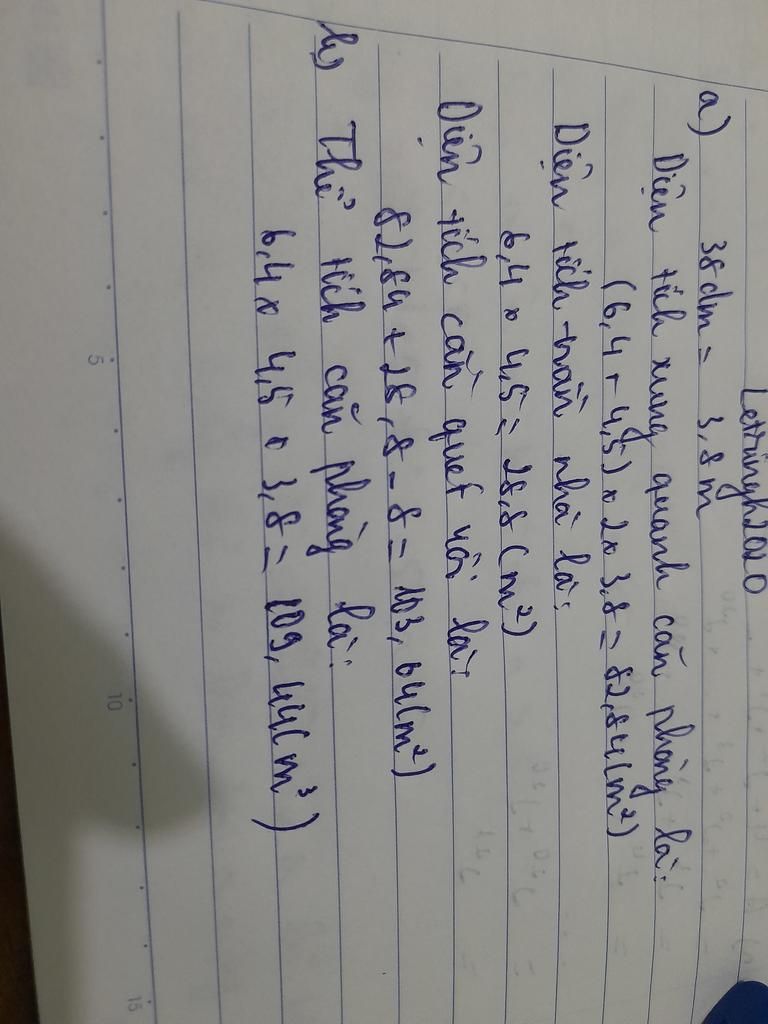 Letrungh2010
a) 38dm = 3,8m
Diện tích xung quanh căn phòng là:
(6,4 + 4,5) x 2 x 3,8 = 82,84 (m²)
Diện tích trần nhà là:
6,4 x 4,5 = 28,8 (m²)
Diện tích cần quét vôi là:
82,84 + 28,8 - 8 = 103,64 (m²)
b) Thể tích căn phòng là:
6,4 x 4,5 x 3,8 = 109,44 (m³)
5
10
15